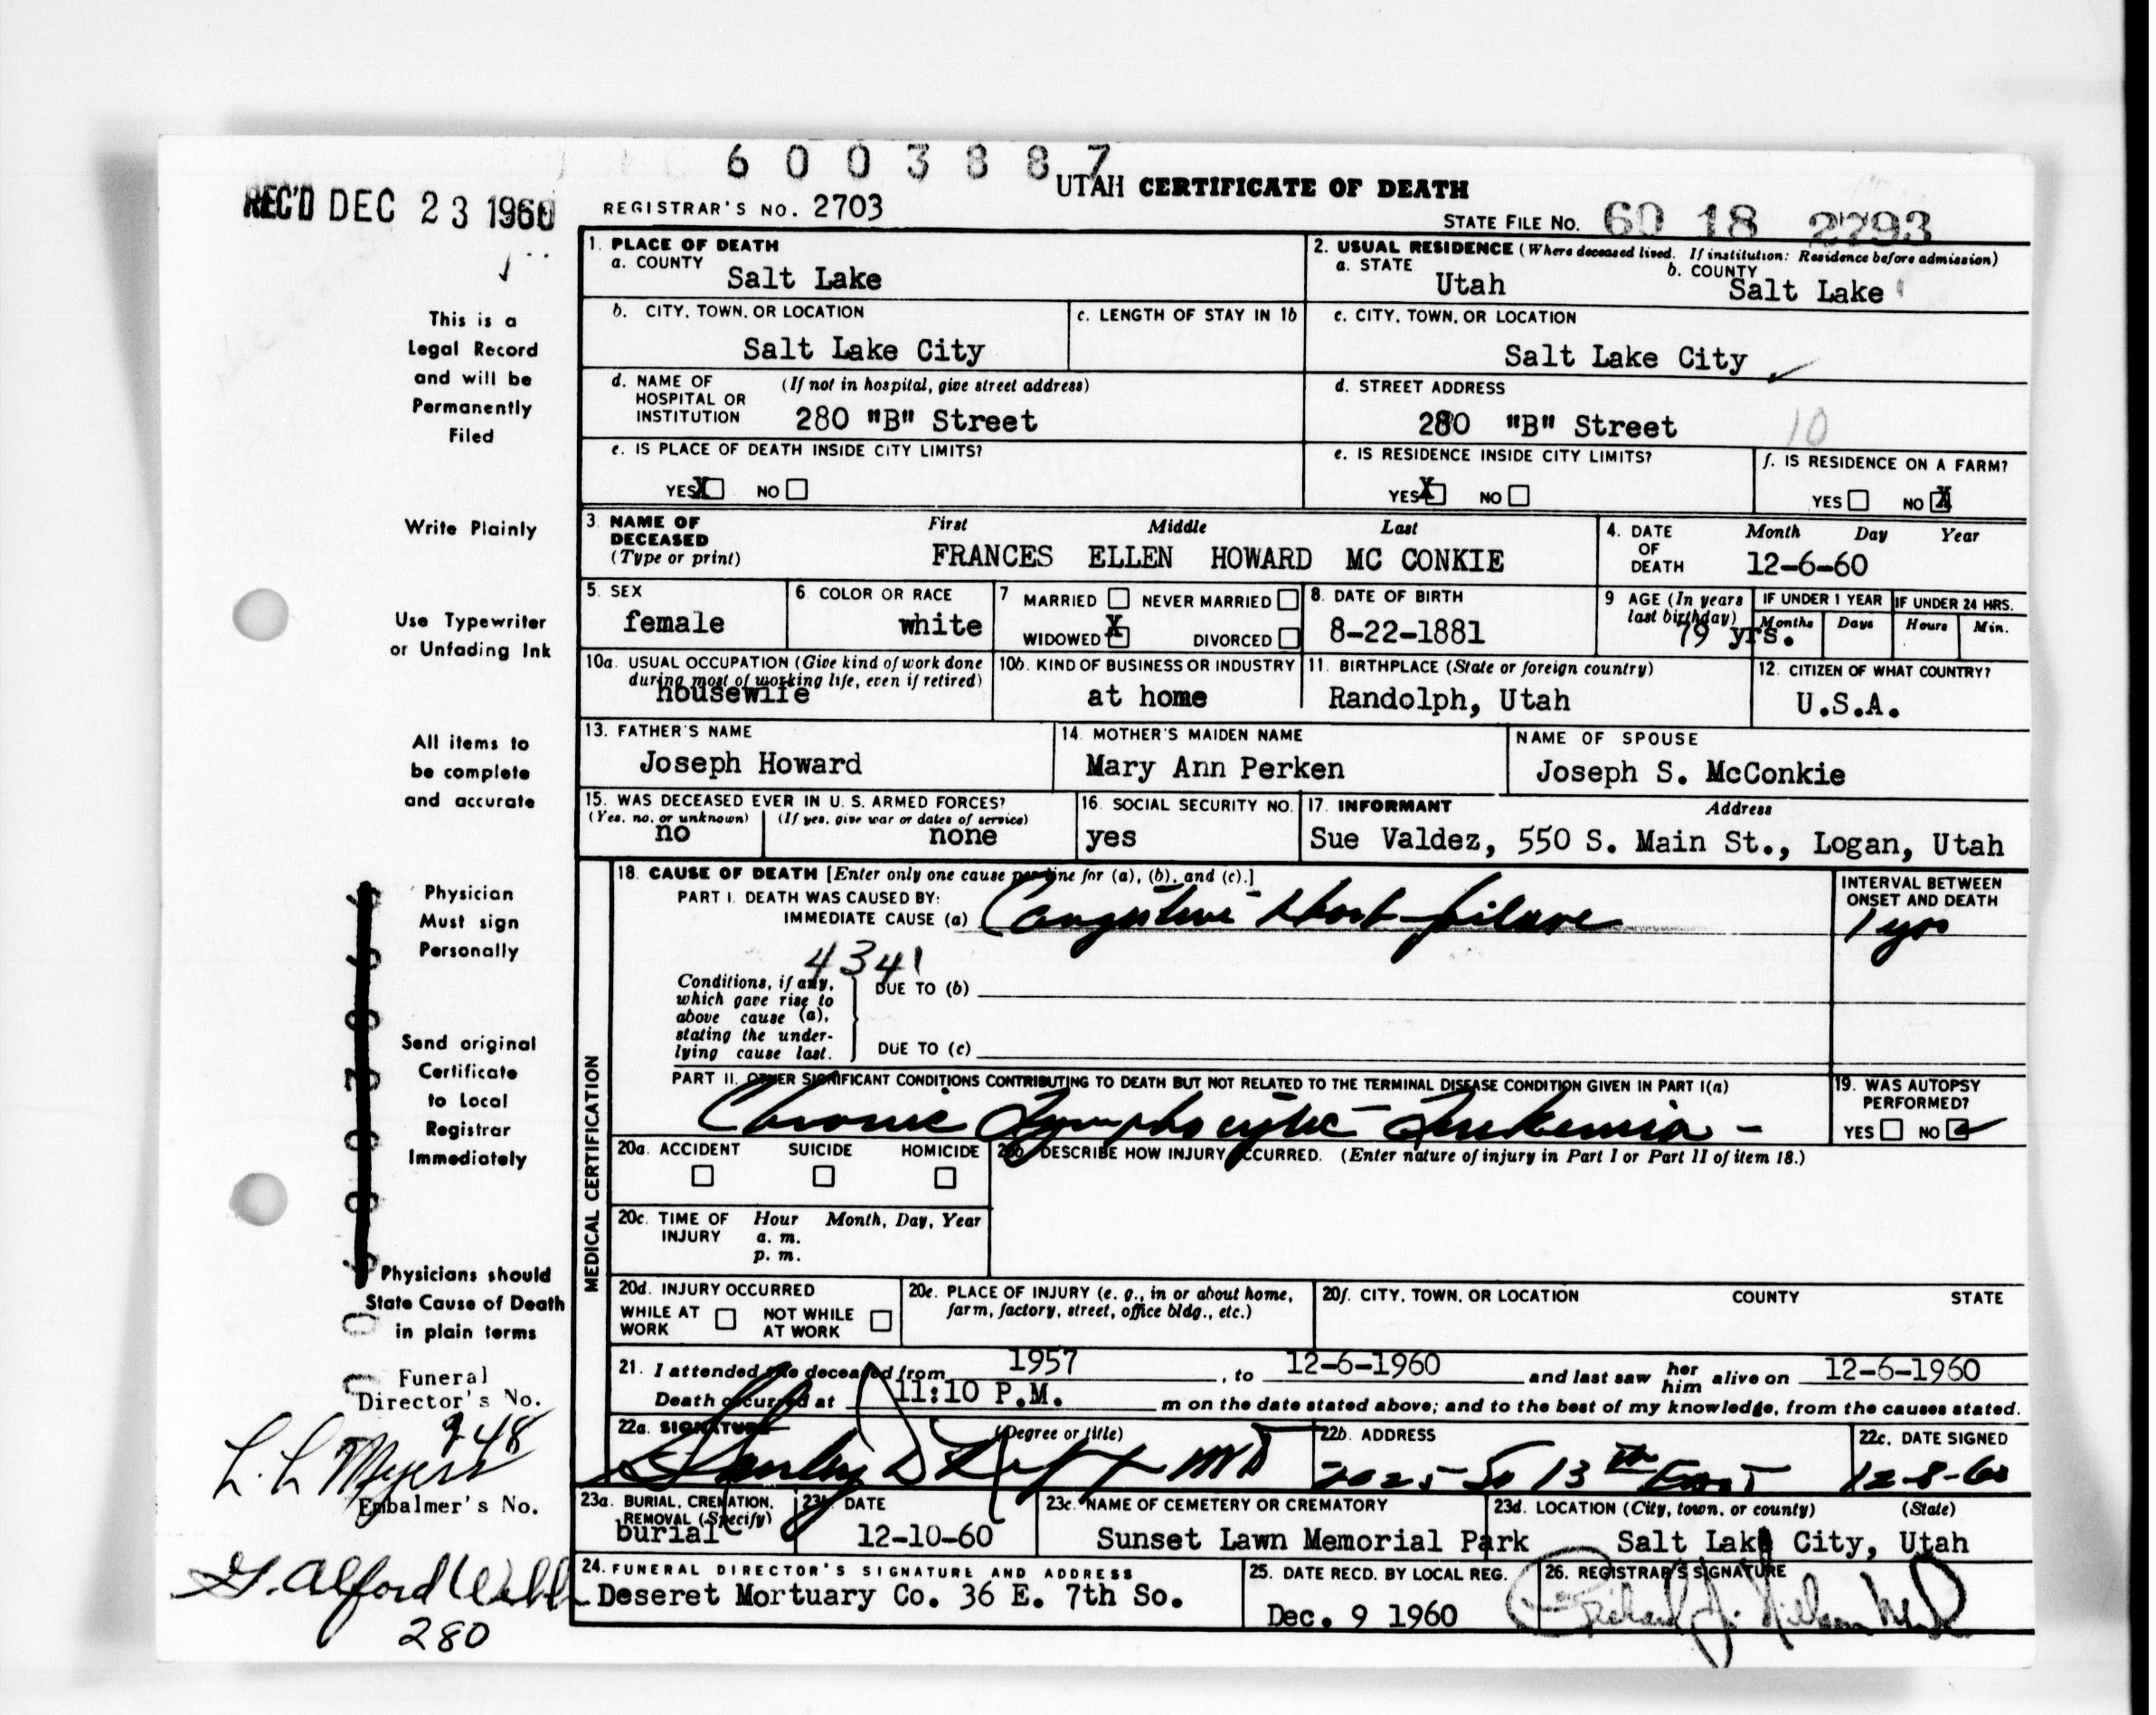 6 0 0 3 8 8 7
UTAH CERTIFICATE OF DEATH
REC'D DEC 23 1960
REGISTRAR'S NO. 2703
STATE FILE NO. 60 18 2793
1. PLACE OF DEATH
a. COUNTY
Salt Lake
2. USUAL RESIDENCE (Where deceased lived. If institution: Residence before admission)
a. STATE
Utah
b. COUNTY
Salt Lake
b. CITY, TOWN, OR LOCATION
Salt Lake City
c. LENGTH OF STAY IN 1b
c. CITY, TOWN, OR LOCATION
Salt Lake City
d. NAME OF HOSPITAL OR INSTITUTION
(If not in hospital, give street address)
280 "B" Street
d. STREET ADDRESS
280 "B" Street
10
e. IS PLACE OF DEATH INSIDE CITY LIMITS?
YES X NO
e. IS RESIDENCE INSIDE CITY LIMITS?
YES X NO
f. IS RESIDENCE ON A FARM?
YES NO X
3. NAME OF DECEASED
(Type or print)
First Middle Last
FRANCES ELLEN HOWARD MC CONKIE
4. DATE OF DEATH
Month Day Year
12-6-60
5. SEX
female
6. COLOR OR RACE
white
7 MARRIED NEVER MARRIED
WIDOWED X DIVORCED
8. DATE OF BIRTH
8-22-1881
9 AGE (In years last birthday)
79 yrs.
IF UNDER 1 YEAR
Months Days
IF UNDER 24 HRS.
Hours Min.
10a. USUAL OCCUPATION (Give kind of work done during most of working life, even if retired)
housewife
10b. KIND OF BUSINESS OR INDUSTRY
at home
11. BIRTHPLACE (State or foreign country)
Randolph, Utah
12. CITIZEN OF WHAT COUNTRY?
U.S.A.
13. FATHER'S NAME
Joseph Howard
14. MOTHER'S MAIDEN NAME
Mary Ann Perken
NAME OF SPOUSE
Joseph S. McConkie
15. WAS DECEASED EVER IN U. S. ARMED FORCES?
(Yes, no, or unknown)
no
(If yes, give war or dates of service)
none
16. SOCIAL SECURITY NO.
yes
17. INFORMANT Address
Sue Valdez, 550 S. Main St., Logan, Utah
MEDICAL CERTIFICATION
18. CAUSE OF DEATH [Enter only one cause per line for (a), (b), and (c).]
PART I. DEATH WAS CAUSED BY:
IMMEDIATE CAUSE (a) Congestive Heart failure
INTERVAL BETWEEN ONSET AND DEATH
1 yr
4341
Conditions, if any, which gave rise to above cause (a), stating the underlying cause last.
DUE TO (b)
DUE TO (c)
PART II. OTHER SIGNIFICANT CONDITIONS CONTRIBUTING TO DEATH BUT NOT RELATED TO THE TERMINAL DISEASE CONDITION GIVEN IN PART I(a)
Chronic Lymphocytic Leukemia -
19. WAS AUTOPSY PERFORMED?
YES NO
20a. ACCIDENT SUICIDE HOMICIDE
20b. DESCRIBE HOW INJURY OCCURRED. (Enter nature of injury in Part I or Part II of item 18.)
20c. TIME OF INJURY
Hour Month, Day, Year
a. m.
p. m.
20d. INJURY OCCURRED
WHILE AT WORK NOT WHILE AT WORK
20e. PLACE OF INJURY (e. g., in or about home, farm, factory, street, office bldg., etc.)
20f. CITY, TOWN, OR LOCATION COUNTY STATE
21. I attended the deceased from 1957, to 12-6-1960 and last saw her him alive on 12-6-1960
Death occurred at 11:10 P.M. m on the date stated above; and to the best of my knowledge, from the causes stated.
22a. SIGNATURE (Degree or title)
MD
22b. ADDRESS
2025 So 13th East
22c. DATE SIGNED
12-8-60
23a. BURIAL, CREMATION, REMOVAL (Specify)
burial
23b. DATE
12-10-60
23c. NAME OF CEMETERY OR CREMATORY
Sunset Lawn Memorial Park
23d. LOCATION (City, town, or county) (State)
Salt Lake City, Utah
24. FUNERAL DIRECTOR'S SIGNATURE AND ADDRESS
Deseret Mortuary Co. 36 E. 7th So.
25. DATE RECD. BY LOCAL REG.
Dec. 9 1960
26. REGISTRAR'S SIGNATURE
This is a
Legal Record
and will be
Permanently
Filed
Write Plainly
Use Typewriter
or Unfading Ink
All items to
be complete
and accurate
Physician
Must sign
Personally
Send original
Certificate
to Local
Registrar
Immediately
Physicians should
State Cause of Death
in plain terms
Funeral
Director's No.
948
L. L Myers
Embalmer's No.
G. Alford Webb
280